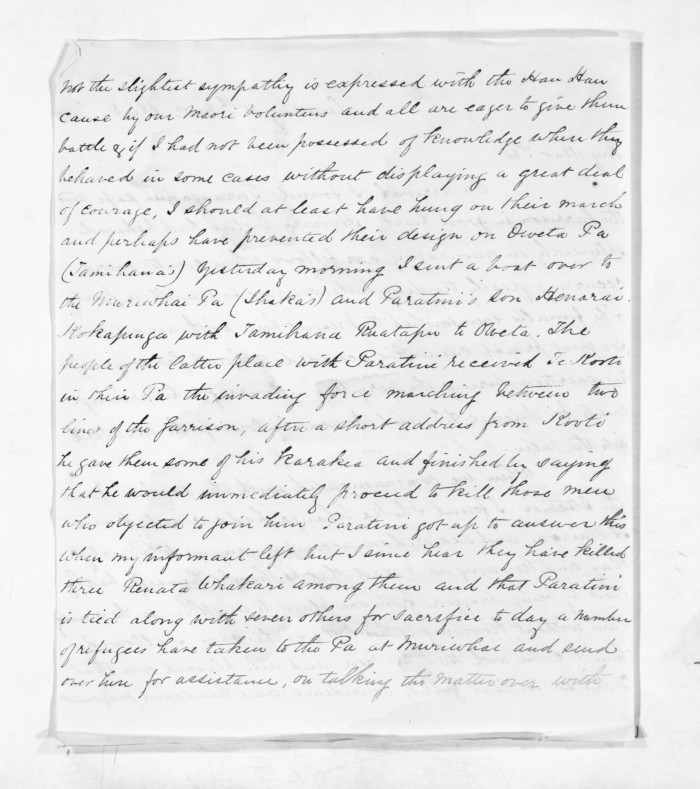 not the slightest sympathy is expressed with the Hau Hau
cause by our Maori Volunteers and all are eager to give them
battle & if I had not been possessed of knowledge when they
behaved in some cases without displaying a great deal
of courage, I should at least have hung on their march
and perhaps have prevented their design on Oweta Pa
(Tamihana's) Yesterday morning I sent a boat over to
the Muriwhai Pa (Ihaka's) and Paratini's son Henarai
Kokapunga with Tamihana Ruatapu to Oweta. The
people of the latter place with Paratini received Te Kooti
in their Pa the invading force marching between two
lines of the Garrison, after a short address from Kooti
he gave them some of his Karakia and finished by saying
that he would immediately proceed to kill those men
who objected to join him. Paratini got up to answer this
when my informant left but I since hear they have killed
three Renata Whakari among them and that Paratini
is tied along with seven others for sacrifice to day a number
of refugees have taken to the Pa at Muriwhai and send
over here for assistance, on talking the matter over with